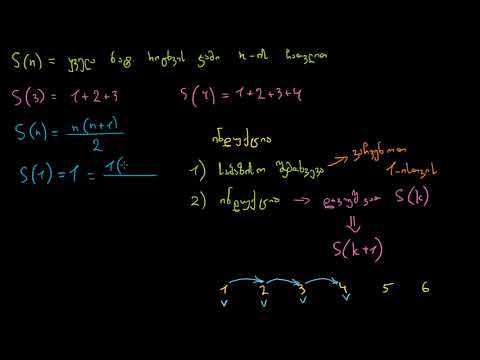 S(n) = ყველა ნატ. რიცხვის ჯამი n-ის ჩათვლით
S(3) = 1+2+3
S(4) = 1+2+3+4
S(n) = n(n+1)/2
S(1) = 1 = 1(
ინდუქცია
1) საბაზისო შემთხვევა → ვაჩვენოთ 1-ისთვის
2) ინდუქცია → დავუშვათ S(k)
⇓
S(k+1)
1 2 3 4 5 6